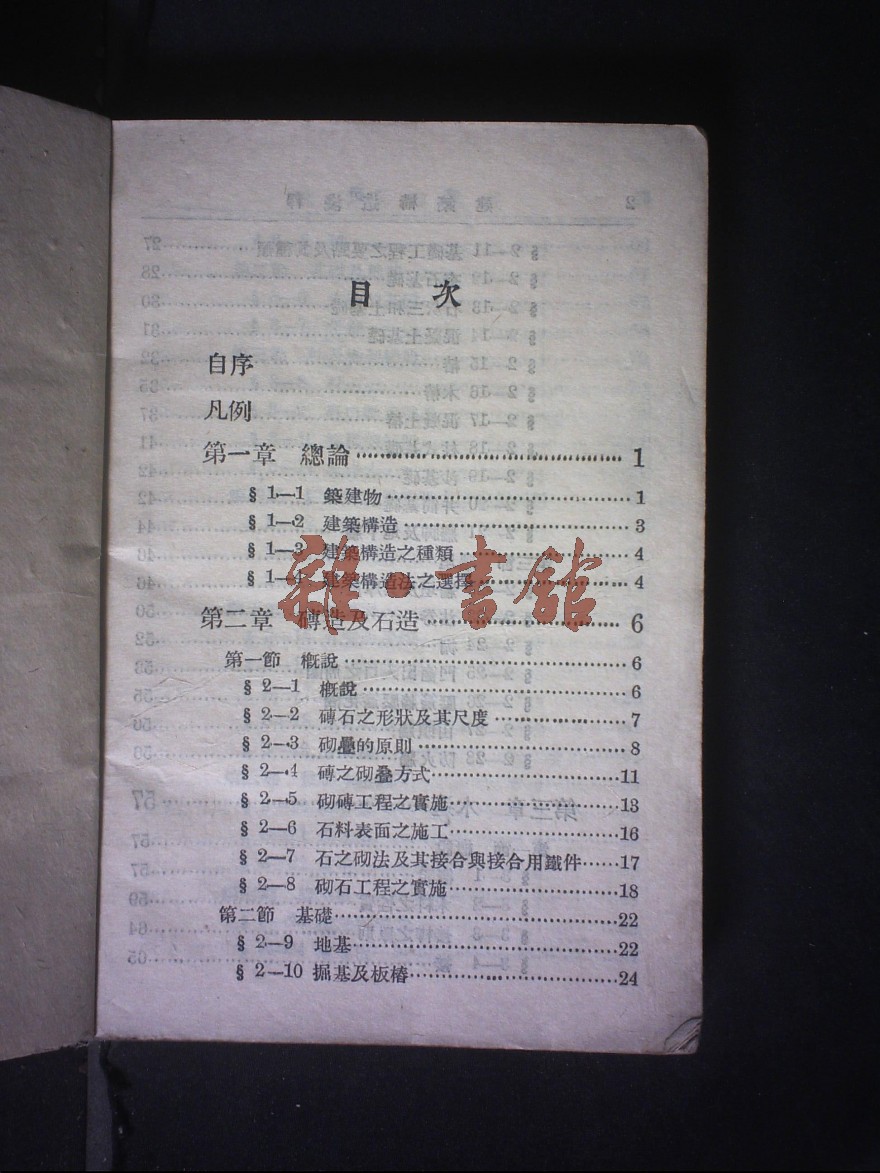 目 次
自序
凡例
第一章 總論 1
§ 1—1 築建物 1
§ 1—2 建築構造 3
§ 1—3 建築構造之種類 4
§ 1—4 建築構造法之選擇 4
第二章 磚造及石造 6
第一節 概說 6
§ 2—1 概說 6
§ 2—2 磚石之形狀及其尺度 7
§ 2—3 砌疊的原則 8
§ 2—4 磚之砌疊方式 11
§ 2—5 砌磚工程之實施 13
§ 2—6 石料表面之施工 16
§ 2—7 石之砌法及其接合與接合用鐵件 17
§ 2—8 砌石工程之實施 18
第二節 基礎 22
§ 2—9 地基 22
§ 2—10 掘基及板樁 24
雜·書館